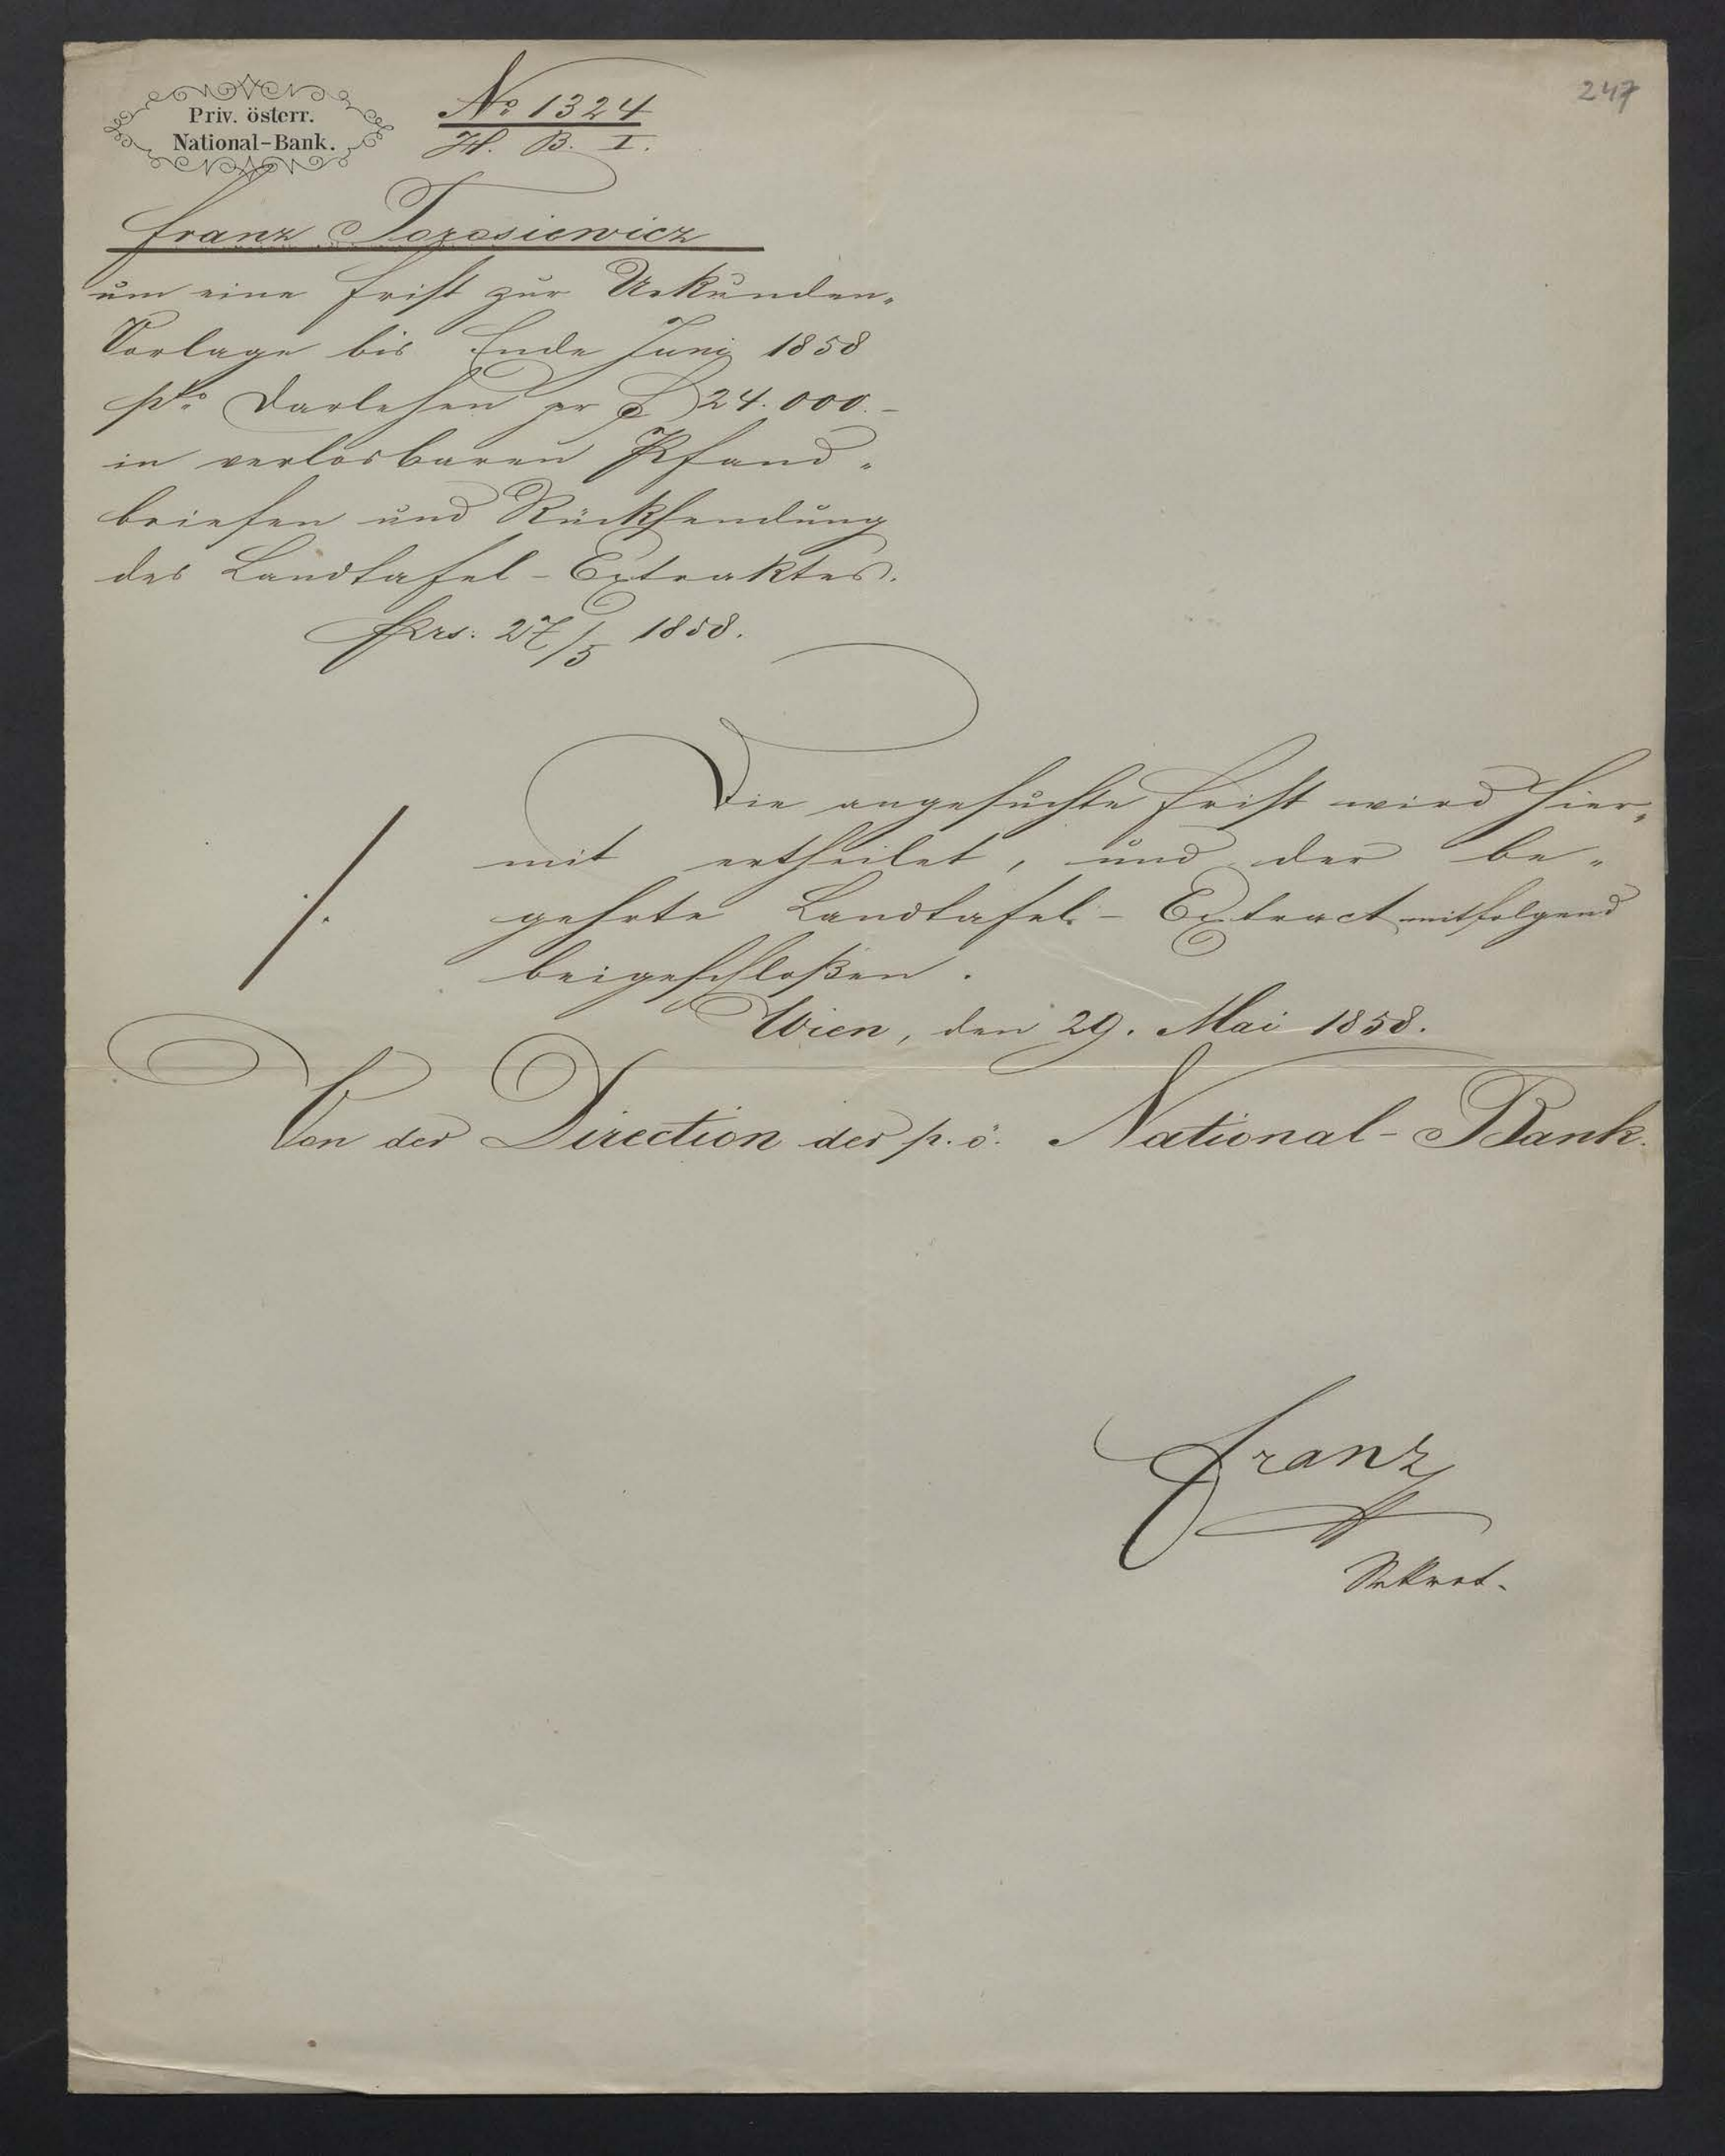 247
Priv. österr.
National-Bank.
No 1324
H. B. I.
Franz Torosiewicz
um eine Frist zur Urkunden-
Vorlage bis Ende Juni 1858
pto Darlehen pr f 24.000.-
in verlosbaren Pfand-
briefen und Rücksendung
des Landtafel-Extraktes.
prs: 27/5 1858.
Die angesuchte Frist wird hier-
mit ertheilet, und der be-
gehrte Landtafel-Extract mitfolgend
beigeschloßen.
./.
Wien, den 29. Mai 1858.
Von der Direction der p. ö. National-Bank.
Franz
Sekret.